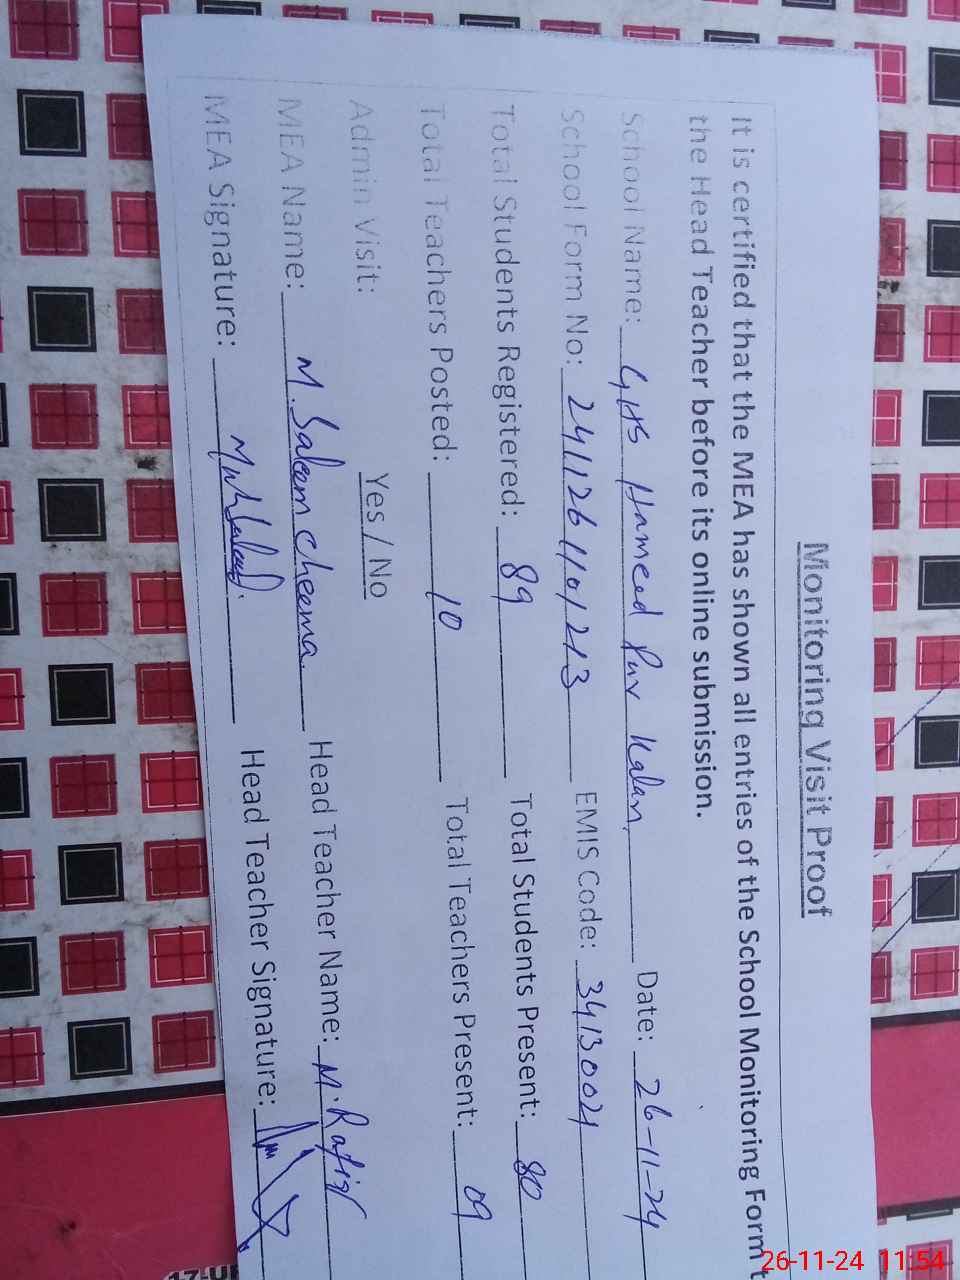 Monitoring Visit Proof
It is certified that the MEA has shown all entries of the School Monitoring Form t
the Head Teacher before its online submission.
School Name: GHS Hameed Pur Kalan Date: 26-11-24
School Form No: 2411261101213 EMIS Code: 34130021
Total Students Registered: 89 Total Students Present: 80
Total Teachers Posted: 10 Total Teachers Present: 09
Admin Visit: Yes / No
MEA Name: M. Saleem Cheema Head Teacher Name: M. Rafiq
MEA Signature: Head Teacher Signature:
26-11-24 11:54